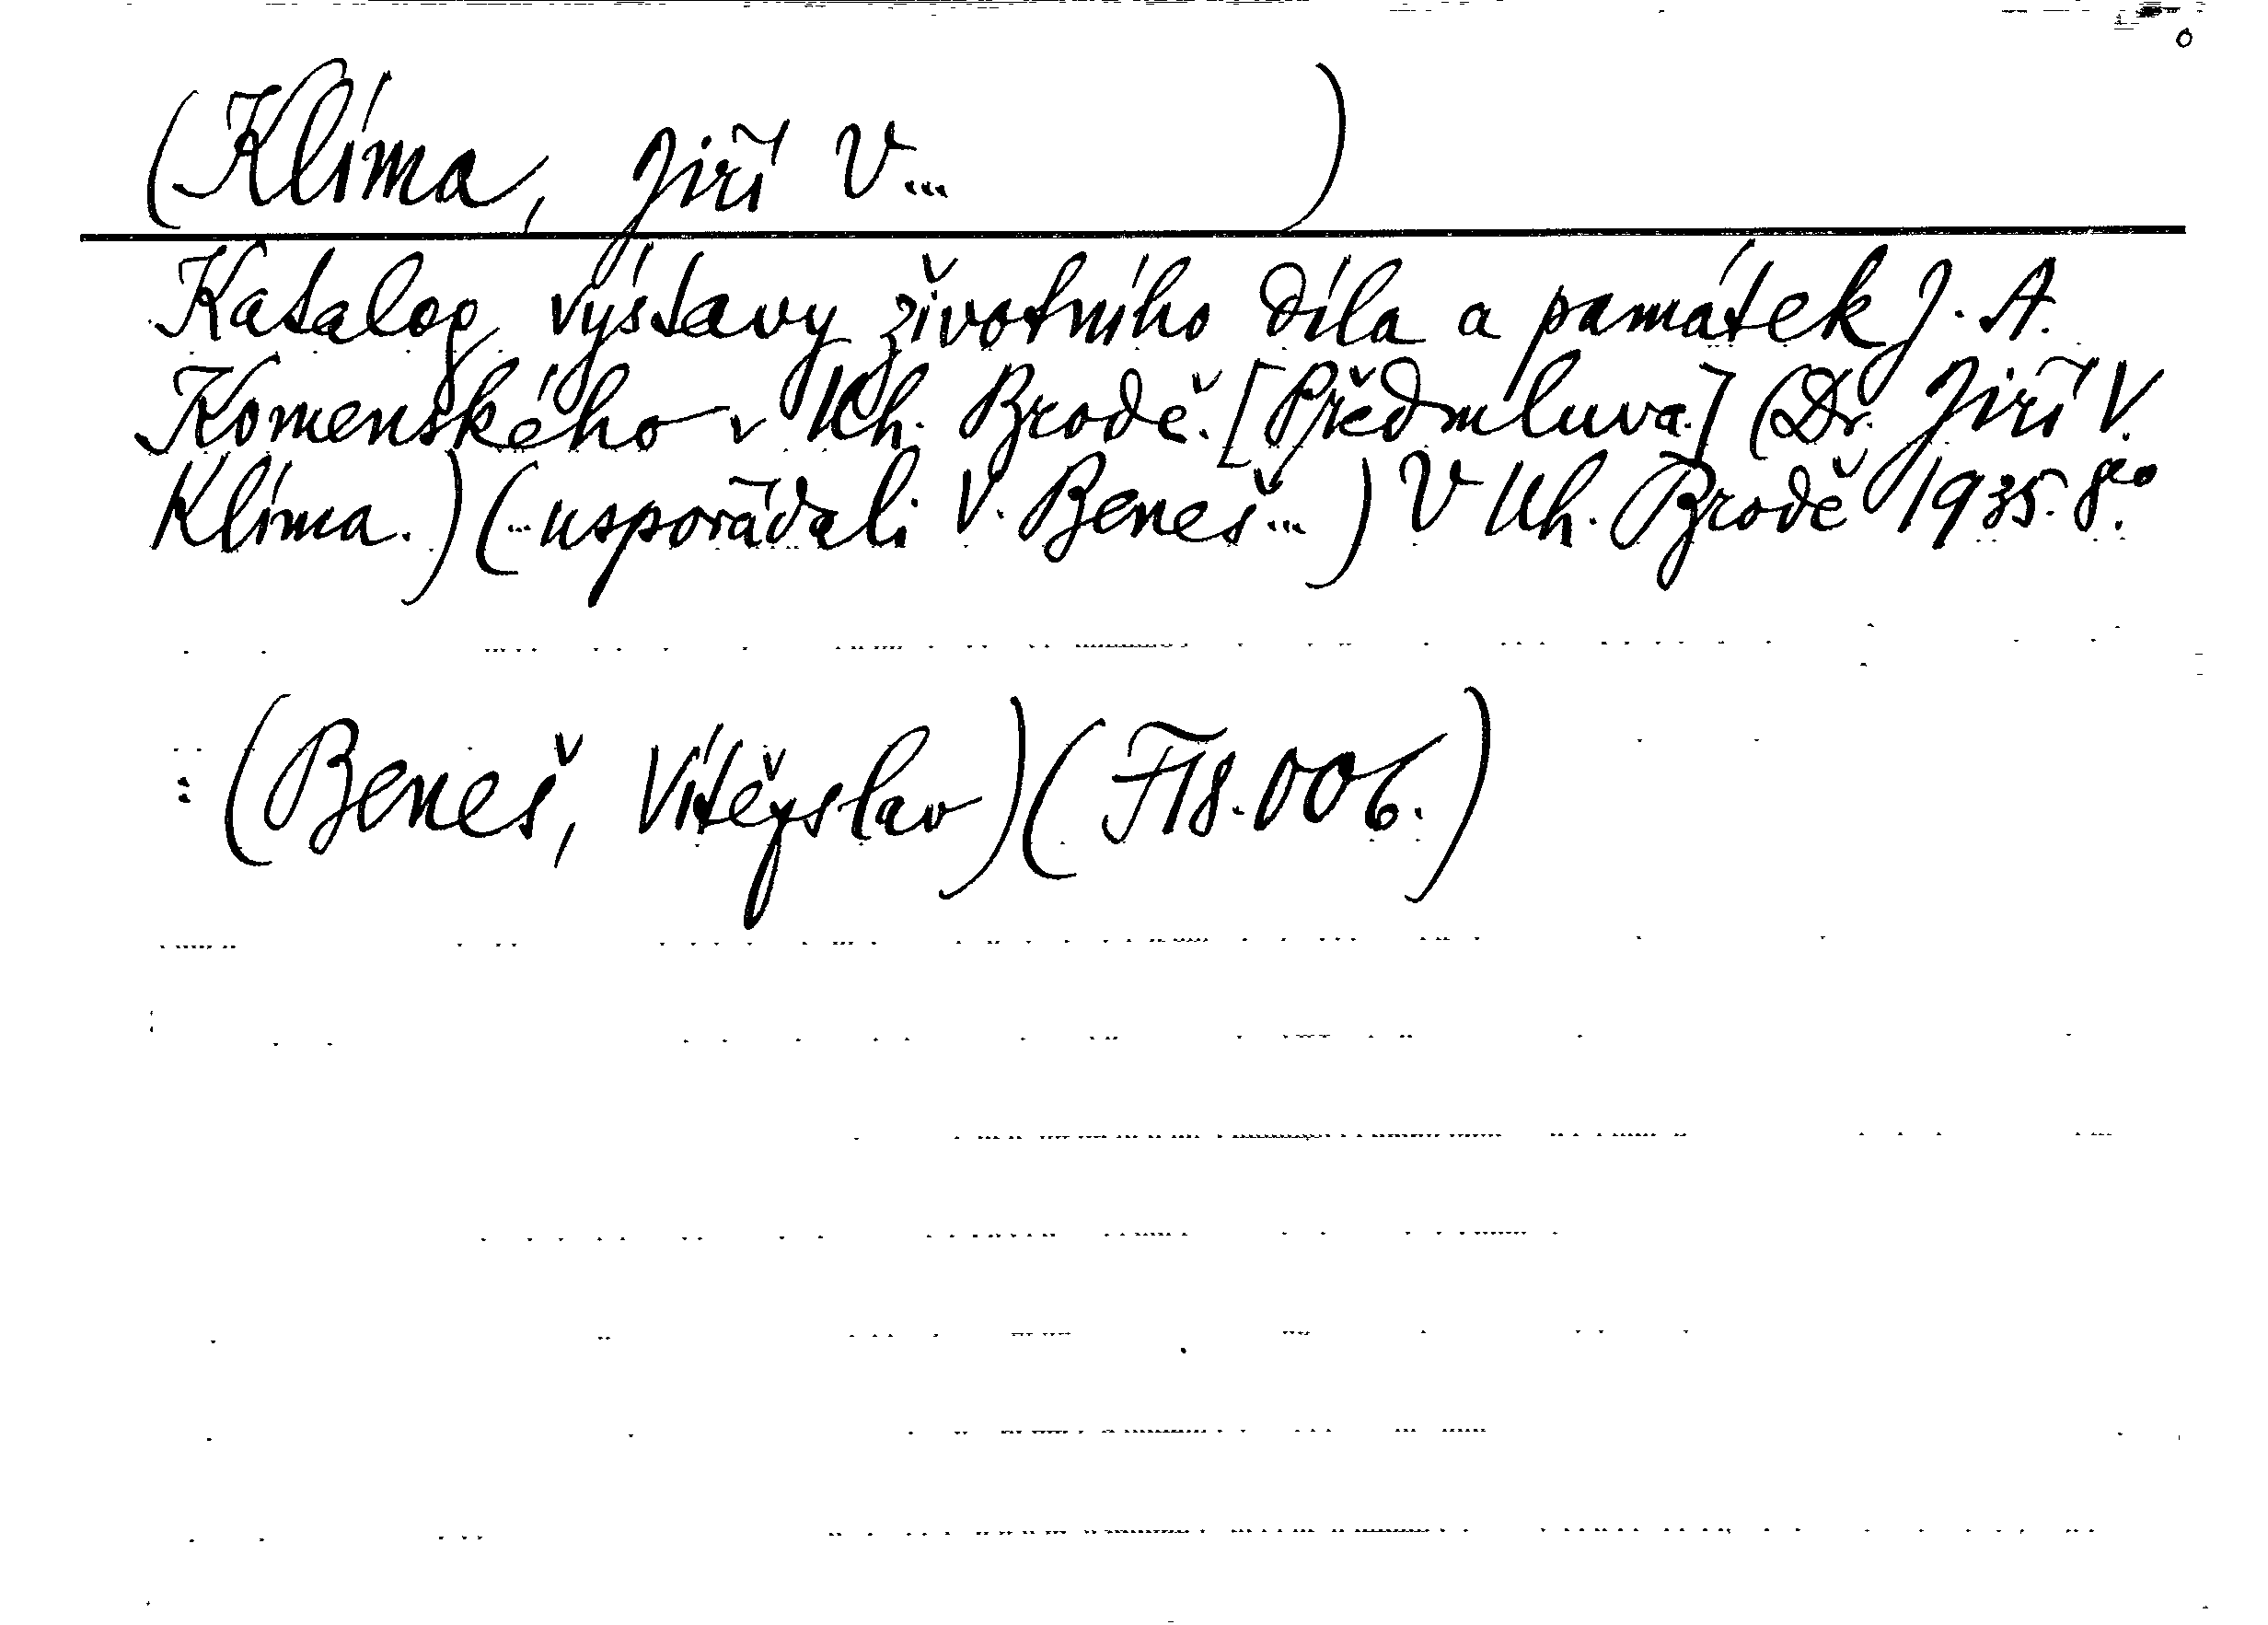 (Klíma, Jiří V... )
Katalog výstavy životního díla a památek J. A.
Komenského v Uh. Brodě. [Předmluva.] (Dr. Jiří V.
Klíma.) (...uspořádali V. Beneš...) V Uh. Brodě 1935. 8°.
: (Beneš, Vítězslav) (F18.006.)